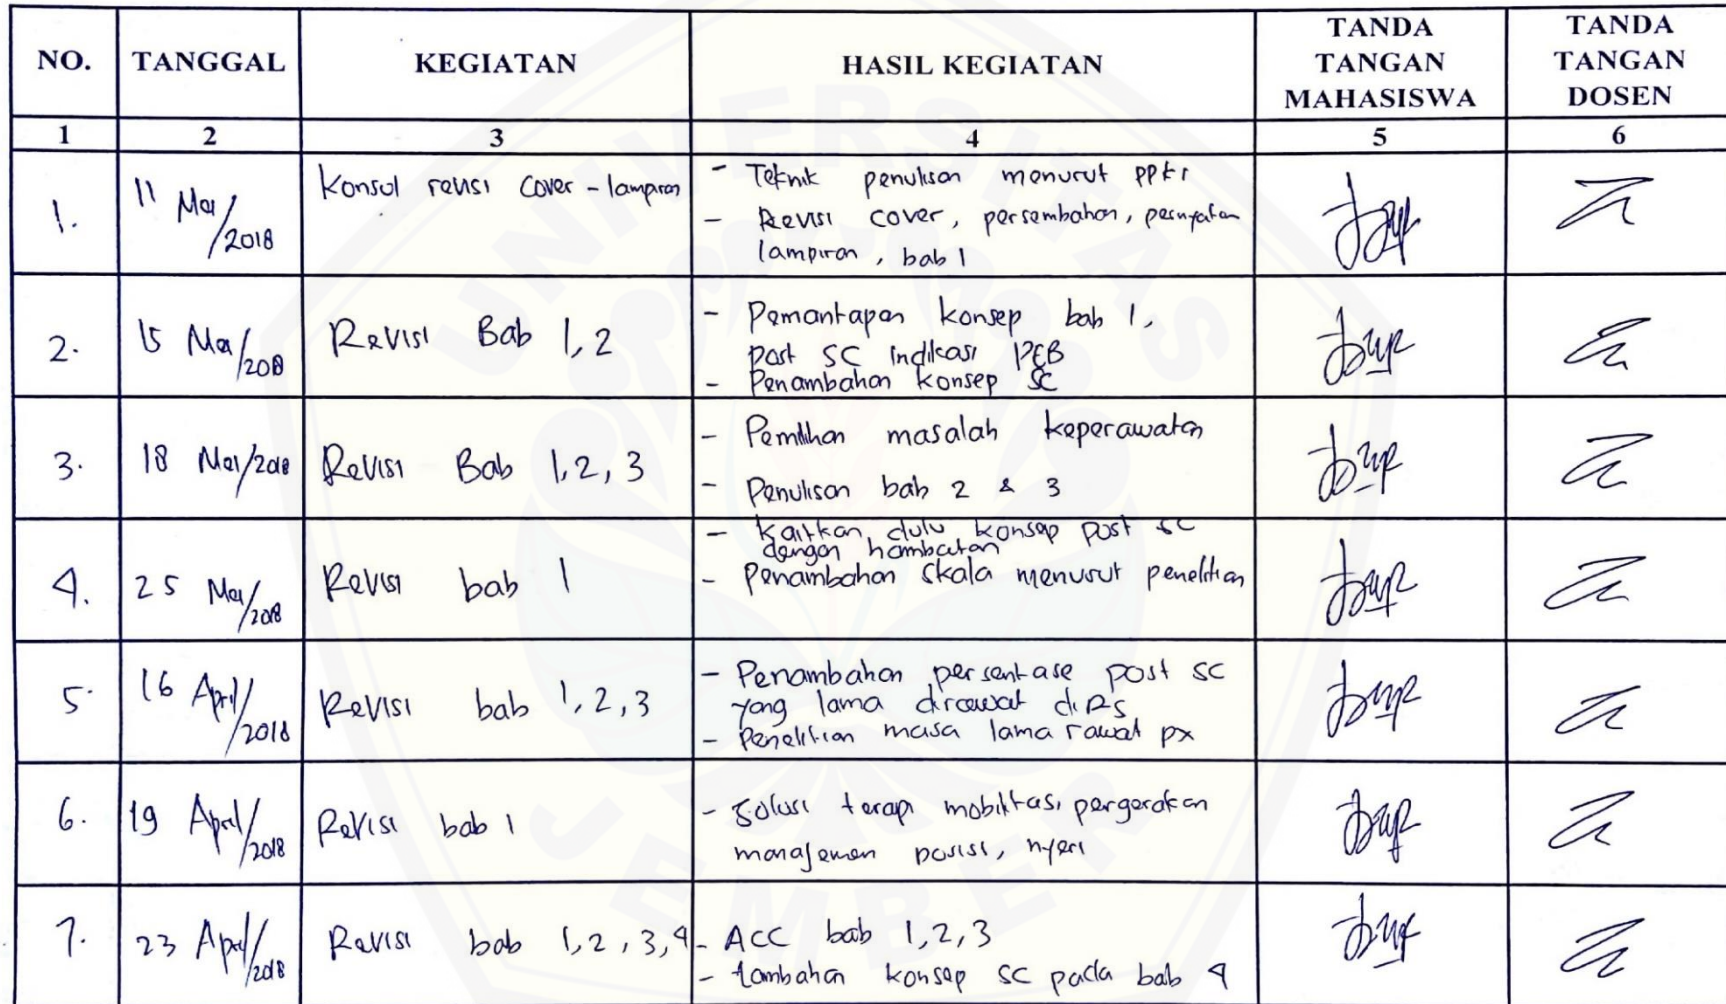 NO. TANGGAL KEGIATAN HASIL KEGIATAN TANDA TANGAN MAHASISWA TANDA TANGAN DOSEN
1 2 3 4 5 6
1. 11 Mei/2018 Konsul revisi cover - lampiran - Teknik penulisan menurut PPKI
- Revisi cover, persembahan, pernyataan
lampiran, bab 1
2. 15 Mei/2018 Revisi Bab 1,2 - Pemantapan konsep bab 1,
post SC indikasi PEB
- Penambahan konsep SC
3. 18 Mei/2018 Revisi Bab 1,2,3 - Pemilihan masalah keperawatan
- Penulisan bab 2 & 3
4. 25 Mei/2018 Revisi bab 1 - Kaitkan dulu konsep post SC
dengan hambatan
- Penambahan skala menurut penelitian
5. 16 April/2018 Revisi bab 1,2,3 - Penambahan persentase post SC
yang lama dirawat di RS
- Penelitian masa lama rawat px
6. 19 April/2018 Revisi bab 1 - Solusi terapi mobilitas, pergerakan
manajemen posisi, nyeri
7. 23 April/2018 Revisi bab 1,2,3,4 - ACC bab 1,2,3
- tambahan konsep SC pada bab 4
UNIVERSITAS
JEMBER